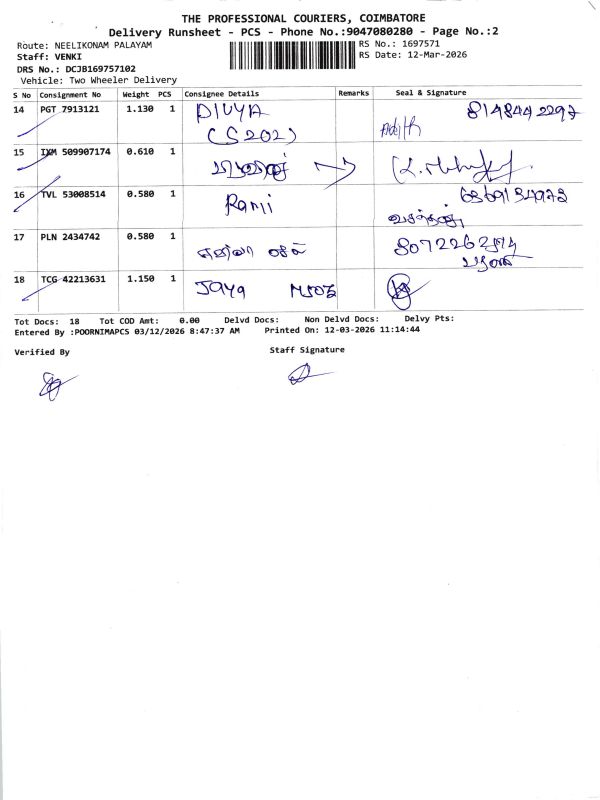 THE PROFESSIONAL COURIERS, COIMBATORE
Delivery Runsheet - PCS - Phone No.:9047080280 - Page No.:2
Route: NEELIKONAM PALAYAM
RS No.: 1697571
Staff: VENKI
RS Date: 12-Mar-2026
DRS No.: DCJB169757102
Vehicle: Two Wheeler Delivery
S No Consignment No Weight PCS Consignee Details Remarks Seal & Signature
14 PGT 7913121 1.130 1 DIVYA 8148442297
(S202)
15 IXM 509907174 0.610 1
16 TVL 53008514 0.580 1 Rami
17 PLN 2434742 0.580 1
18 TCG 42213631 1.150 1 Jaya
Tot Docs: 18 Tot COD Amt: 0.00 Delvd Docs: Non Delvd Docs: Delvy Pts:
Entered By :POORNIMAPCS 03/12/2026 8:47:37 AM Printed On: 12-03-2026 11:14:44
Verified By
Staff Signature